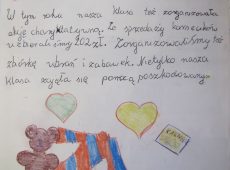 W tym roku nasza klasa też zorganizowała
akcję charytatywną. Ze sprzedaży kamyków
uzbieraliśmy 202 zł. Zorganizowaliśmy też
zbiórkę ubrań i zabawek. Nie tylko nasza
klasa zajęła się pomocą poszkodowanym